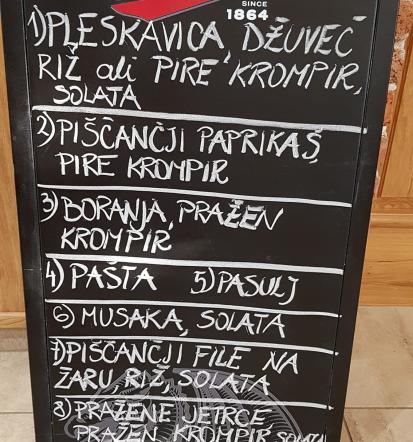 SINCE
1864
1) PLESKAVICA, DŽUVEČ
RIŽ ali PIRE KROMPIR,
SOLATA
2) PIŠČANČJI PAPRIKAŠ,
PIRE KROMPIR
3) BORANJA, PRAŽEN
KROMPIR
4) PAŠTA 5) PASULJ
6) MUSAKA, SOLATA
7) PIŠČANČJI FILE NA
ŽARU RIŽ, SOLATA
8) PRAŽENE JETRCE
PRAŽEN KROMPIR SOLATA